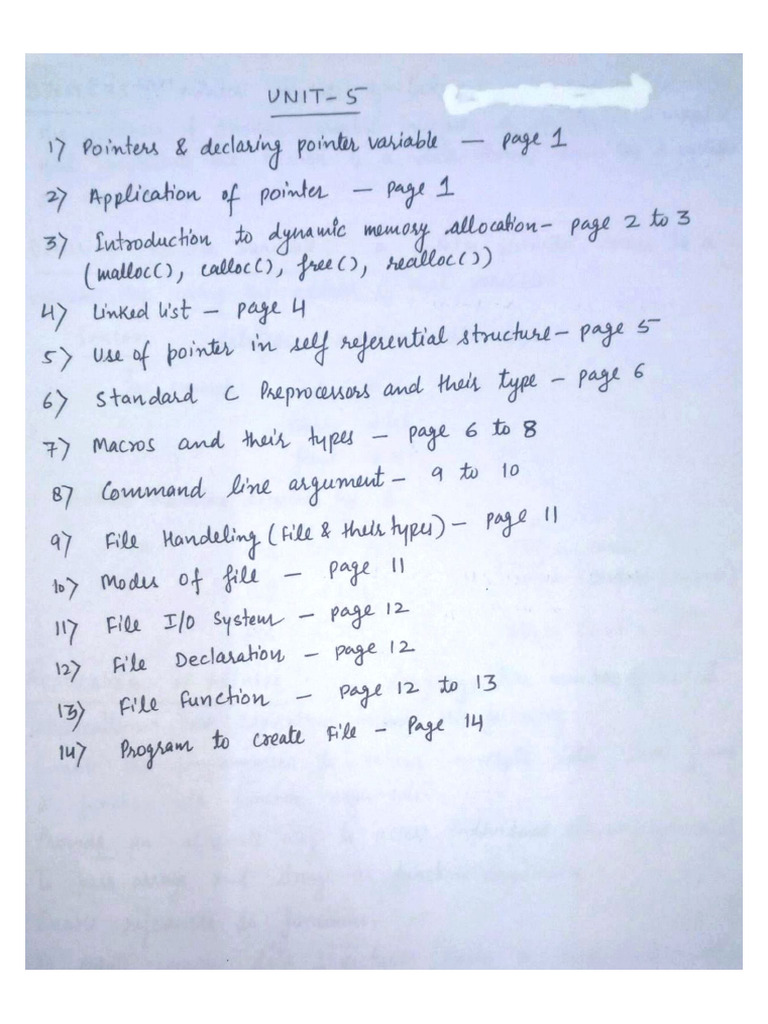 UNIT-5
1) Pointers & declaring pointer variable — page 1
2) Application of pointer — page 1
3) Introduction to dynamic memory allocation- page 2 to 3
(malloc(), calloc(), free(), realloc())
4) Linked list — page 4
5) Use of pointer in self referential structure- page 5
6) Standard C Preprocessors and their type - page 6
7) Macros and their types — page 6 to 8
8) Command line argument- 9 to 10
9) File Handeling (File & their types) - page 11
10) Modes Of file — page 11
11) File I/O System — page 12
12) File Declaration - page 12
13) File Function — page 12 to 13
14) Program to create File - Page 14